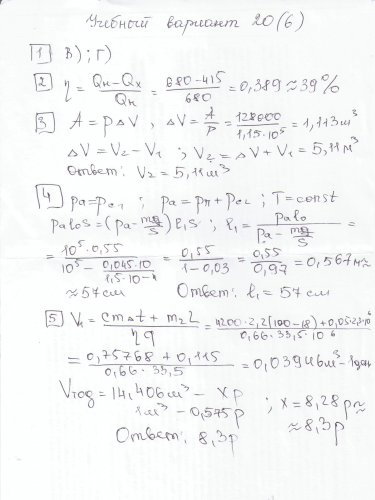 Учебный вариант 20(6)
1 В); Г)
2 η = (Qн−Qх)/Qн = (680−415)/680 = 0,389 ≈ 39%
3 A = pΔV, ΔV = A/p = 128000/1,15·10⁵ = 1,113м³
ΔV = V₂ − V₁ ; V₂ = ΔV + V₁ = 5,11м³
Ответ: V₂ = 5,11м³
4 pa = pc1 ; pa = pп + pc2 ; T = const
pal₀S = (pa − mg/S) l₁S ; l₁ = pal₀/(pa − mg/S) =
= 10⁵·0,55/(10⁵ − 0,045·10/1,5·10⁻⁴) = 0,55/(1−0,03) = 0,55/0,97 = 0,567м ≈
≈ 57см Ответ: l₁ = 57см
5 V₁ = (cmΔt + m₂L)/ηq = (4200·2,2(100−18)+0,05·2,3·10⁶)/(0,66·33,5·10⁶)
= (0,75768 + 0,115)/(0,66·33,5) = 0,03946м³ − 1день
Vгод = 14,406м³ − xр
1м³ − 0,575р ; x = 8,28р ≈
≈ 8,3р
Ответ: 8,3р